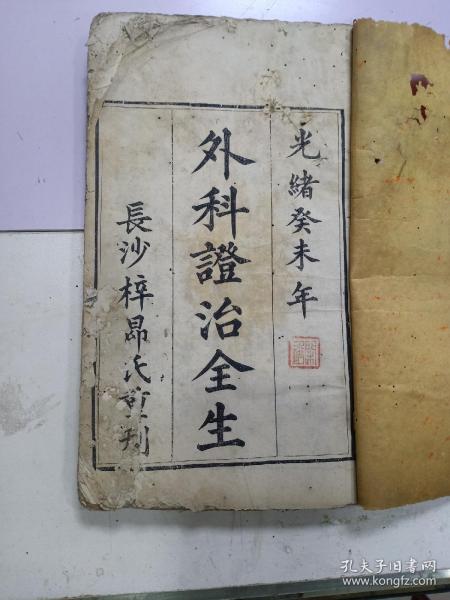 光緒癸未年
外科證治全生
長沙梓昂氏重刋
孔夫子旧书网
www.kongfz.com